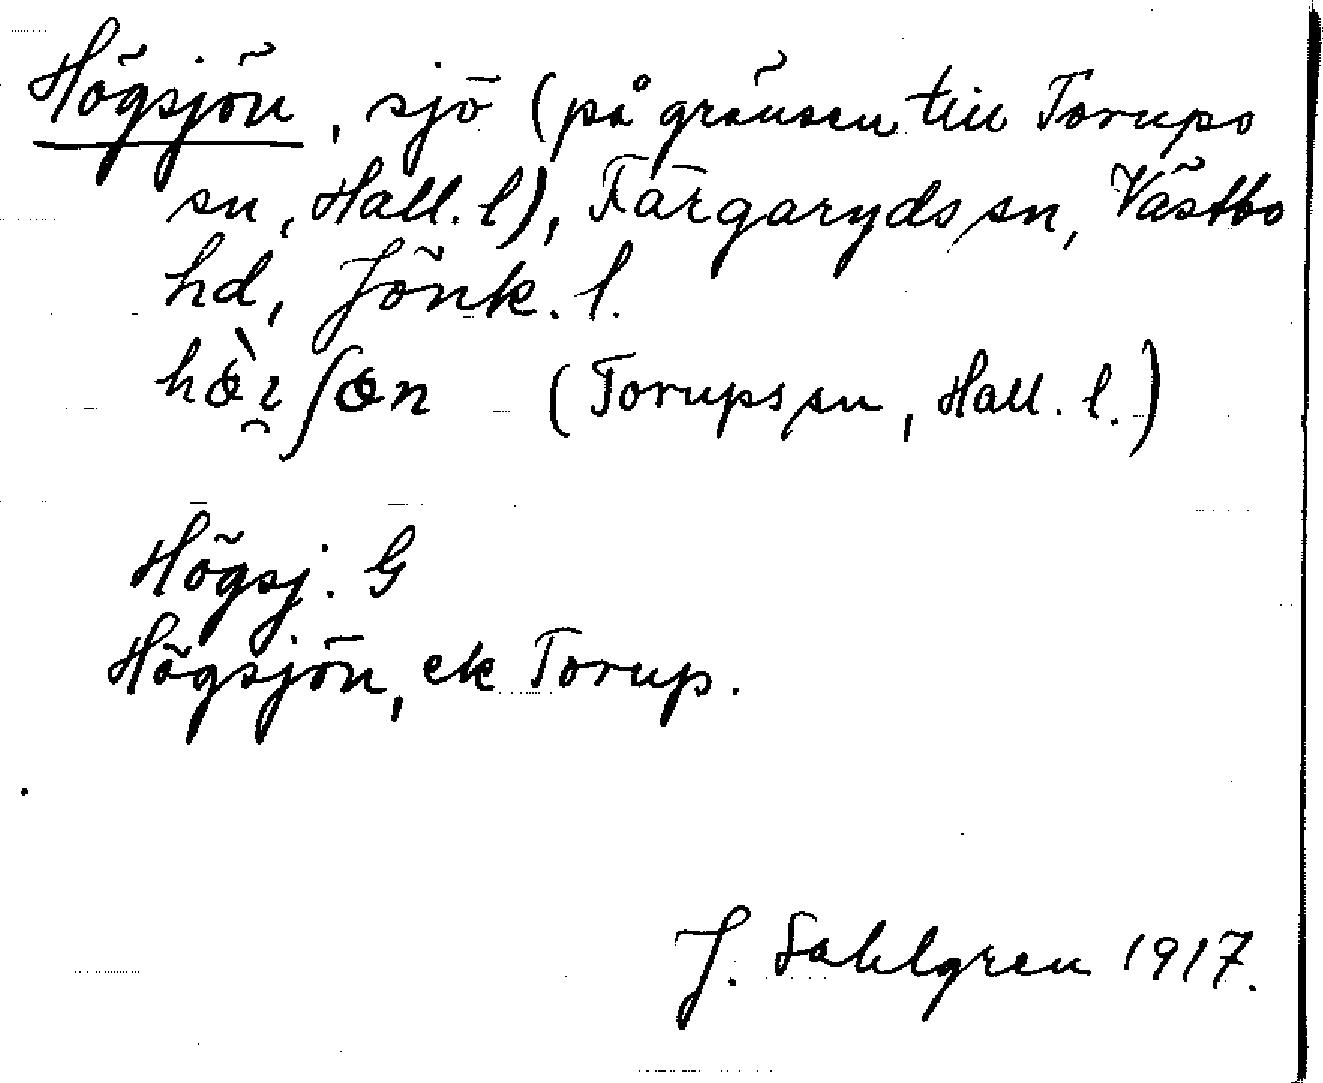 Högsjön, sjö (på gränsen till Torups
sn, Hall. l), Färgaryds sn, Västbo
hd, Jönk. l.
hɵ̀ı̯ʃɵn (Torups sn, Hall. l.)
Högsj. G
Högsjön, ek Torup.
J. Sahlgren 1917.